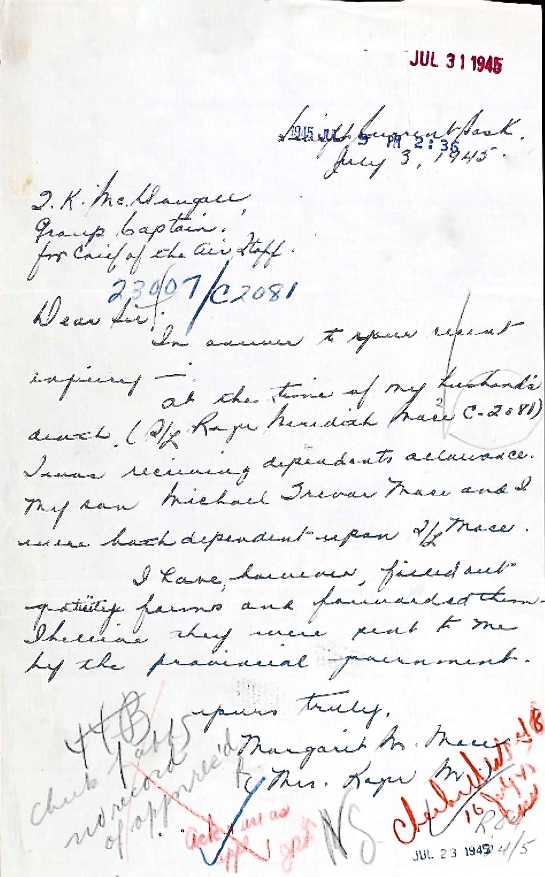 JUL 31 1945
Swift Current Sask.
1945 JUL 9 PM 2:36
July 3, 1945.
T. K. McDougall,
Group Captain,
for Chief of the Air Staff.
23007/C2081
Dear Sir:
In answer to your recent
inquiry —
At the time of my husband's
death, (F/L Roger Meredith Mace C-2081)
I was receiving dependents allowance.
My son Michael Trevor Mace and I
were both dependent upon F/L Mace.
I have, however, filled out
gratuity forms and forwarded them.
I believe they were sent to me
by the provincial government.
yours truly,
Margaret M. Mace
Mrs. Roger M.
check
no record
of
16 July 45
JUL 23 1945
4/5